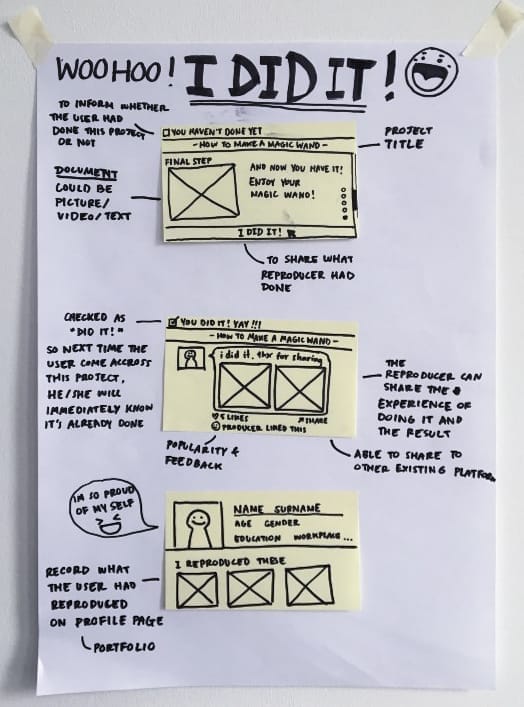 WOOHOO! I DID IT!
TO INFORM WHETHER
THE USER HAD
DONE THIS PROJECT
OR NOT
YOU HAVEN'T DONE YET
- HOW TO MAKE A MAGIC WAND -
PROJECT
TITLE
FINAL STEP
AND NOW YOU HAVE IT!
ENJOY YOUR
MAGIC WAND!
DOCUMENT
COULD BE
PICTURE/
VIDEO/TEXT
I DID IT!
TO SHARE WHAT
REPRODUCER HAD
DONE
CHECKED AS
"DID IT!"
SO NEXT TIME THE
USER COME ACCROSS
THIS PROJECT,
HE/SHE WILL
IMMEDIATELY KNOW
IT'S ALREADY DONE
YOU DID IT! YAY!!!
- HOW TO MAKE A MAGIC WAND -
i did it, thx for sharing
5 LIKES
SHARE
PRODUCER LIKED THIS
THE
REPRODUCER CAN
SHARE THE
EXPERIENCE OF
DOING IT AND
THE RESULT
POPULARITY &
FEEDBACK
ABLE TO SHARE TO
OTHER EXISTING PLATFORM
IM SO PROUD
OF MY SELF
NAME SURNAME
AGE GENDER
EDUCATION WORKPLACE ...
I REPRODUCED THESE
RECORD WHAT
THE USER HAD
REPRODUCED
ON PROFILE PAGE
PORTFOLIO